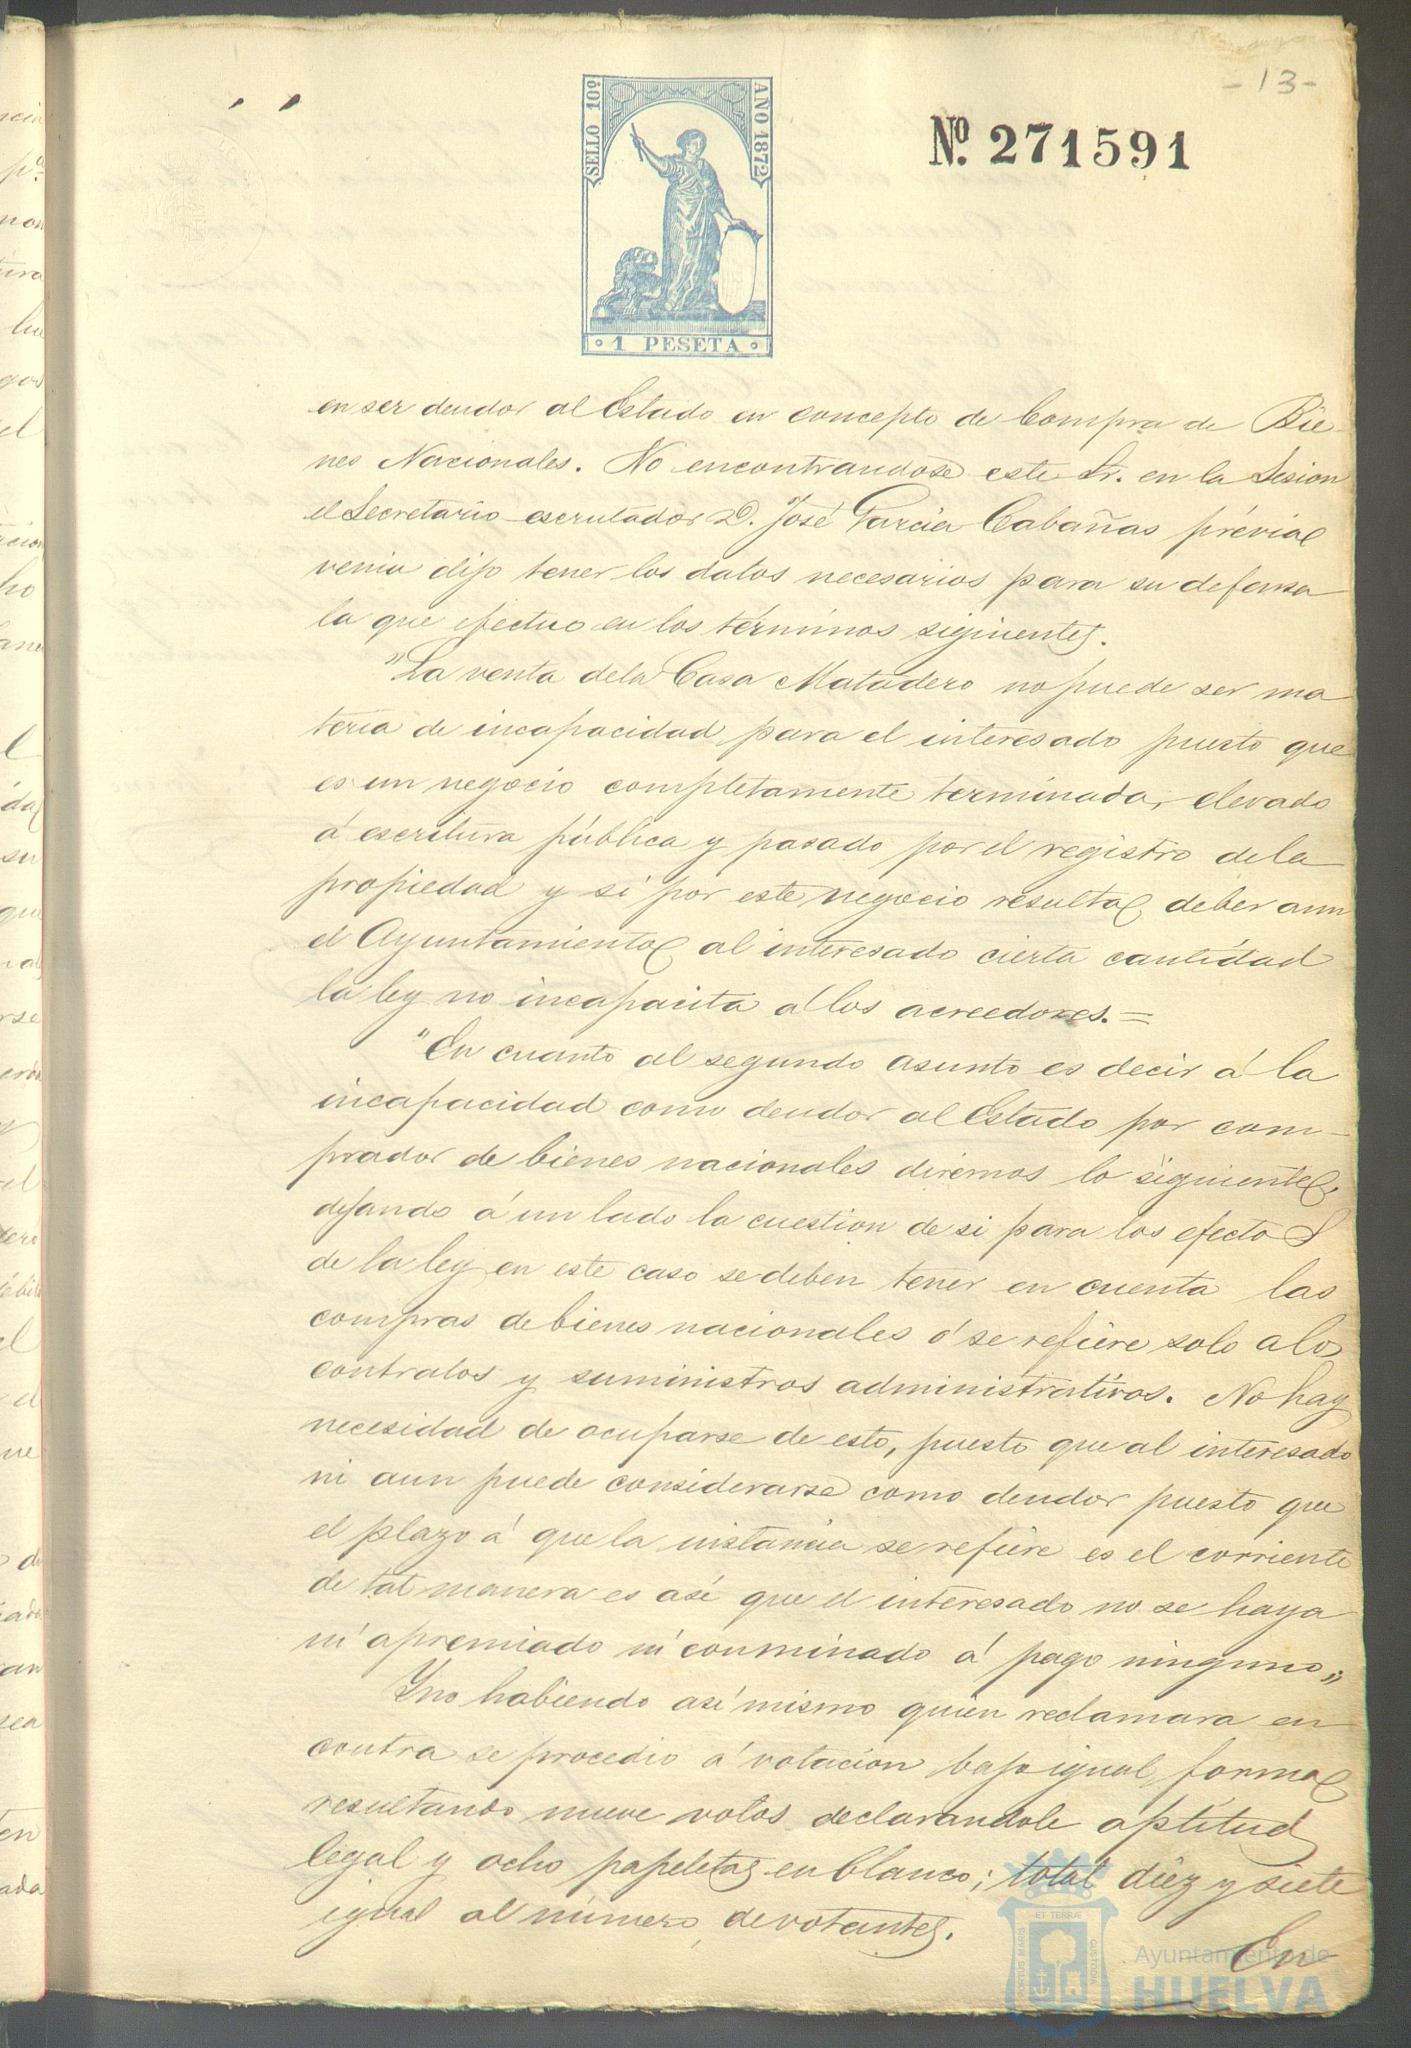 -13-
SELLO 10º
AÑO 1872
Nº. 271591
1 PESETA
en ser deudor al Estado en concepto de Compra de Bie
nes Nacionales. No encontrandose este Sr. en la Sesion
el Secretario escrutador D. José Garcia Cabañas prévia
venia dijo tener los datos necesarios para su defensa
la que efectuo en los términos siguientes.
"La venta dela Casa Matadero no puede ser ma
teria de incapacidad para el interesado puesto que
es un negocio completamente terminado, elevado
á escritura pública y pasado por el registro dela
propiedad y si por este negocio resulta deber aun
el Ayuntamiento al interesado cierta cantidad
la ley no incapacita á los acreedores.=
"En cuanto al segundo asunto es decir á la
incapacidad como deudor al Estado por com-
prador de bienes nacionales diremos lo siguiente,
dejando á un lado la cuestion de si para los efectos
de la ley en este caso se deben tener en cuenta las
compras de bienes nacionales ó se refiere solo a los
contratos y suministros administrativos. No hay
necesidad de ocuparse de esto, puesto que al interesado
ni aun puede considerarse como deudor puesto que
el plazo á que la instancia se refiere es el corriente
de tal manera es asi que el interesado no se haya
ni apremiado ni conminado á pago ninguno„
Y no habiendo asi mismo quien reclamara en
contra se procedio á votacion bajo igual forma
resultando nueve votos declarandole aptitud
legal y ocho papeletas en blanco; total diez y siete
igual al número de votantes.
En
ET TERRÆ
PORTUS MARIS
CUSTODIA
Ayuntamiento de
HUELVA